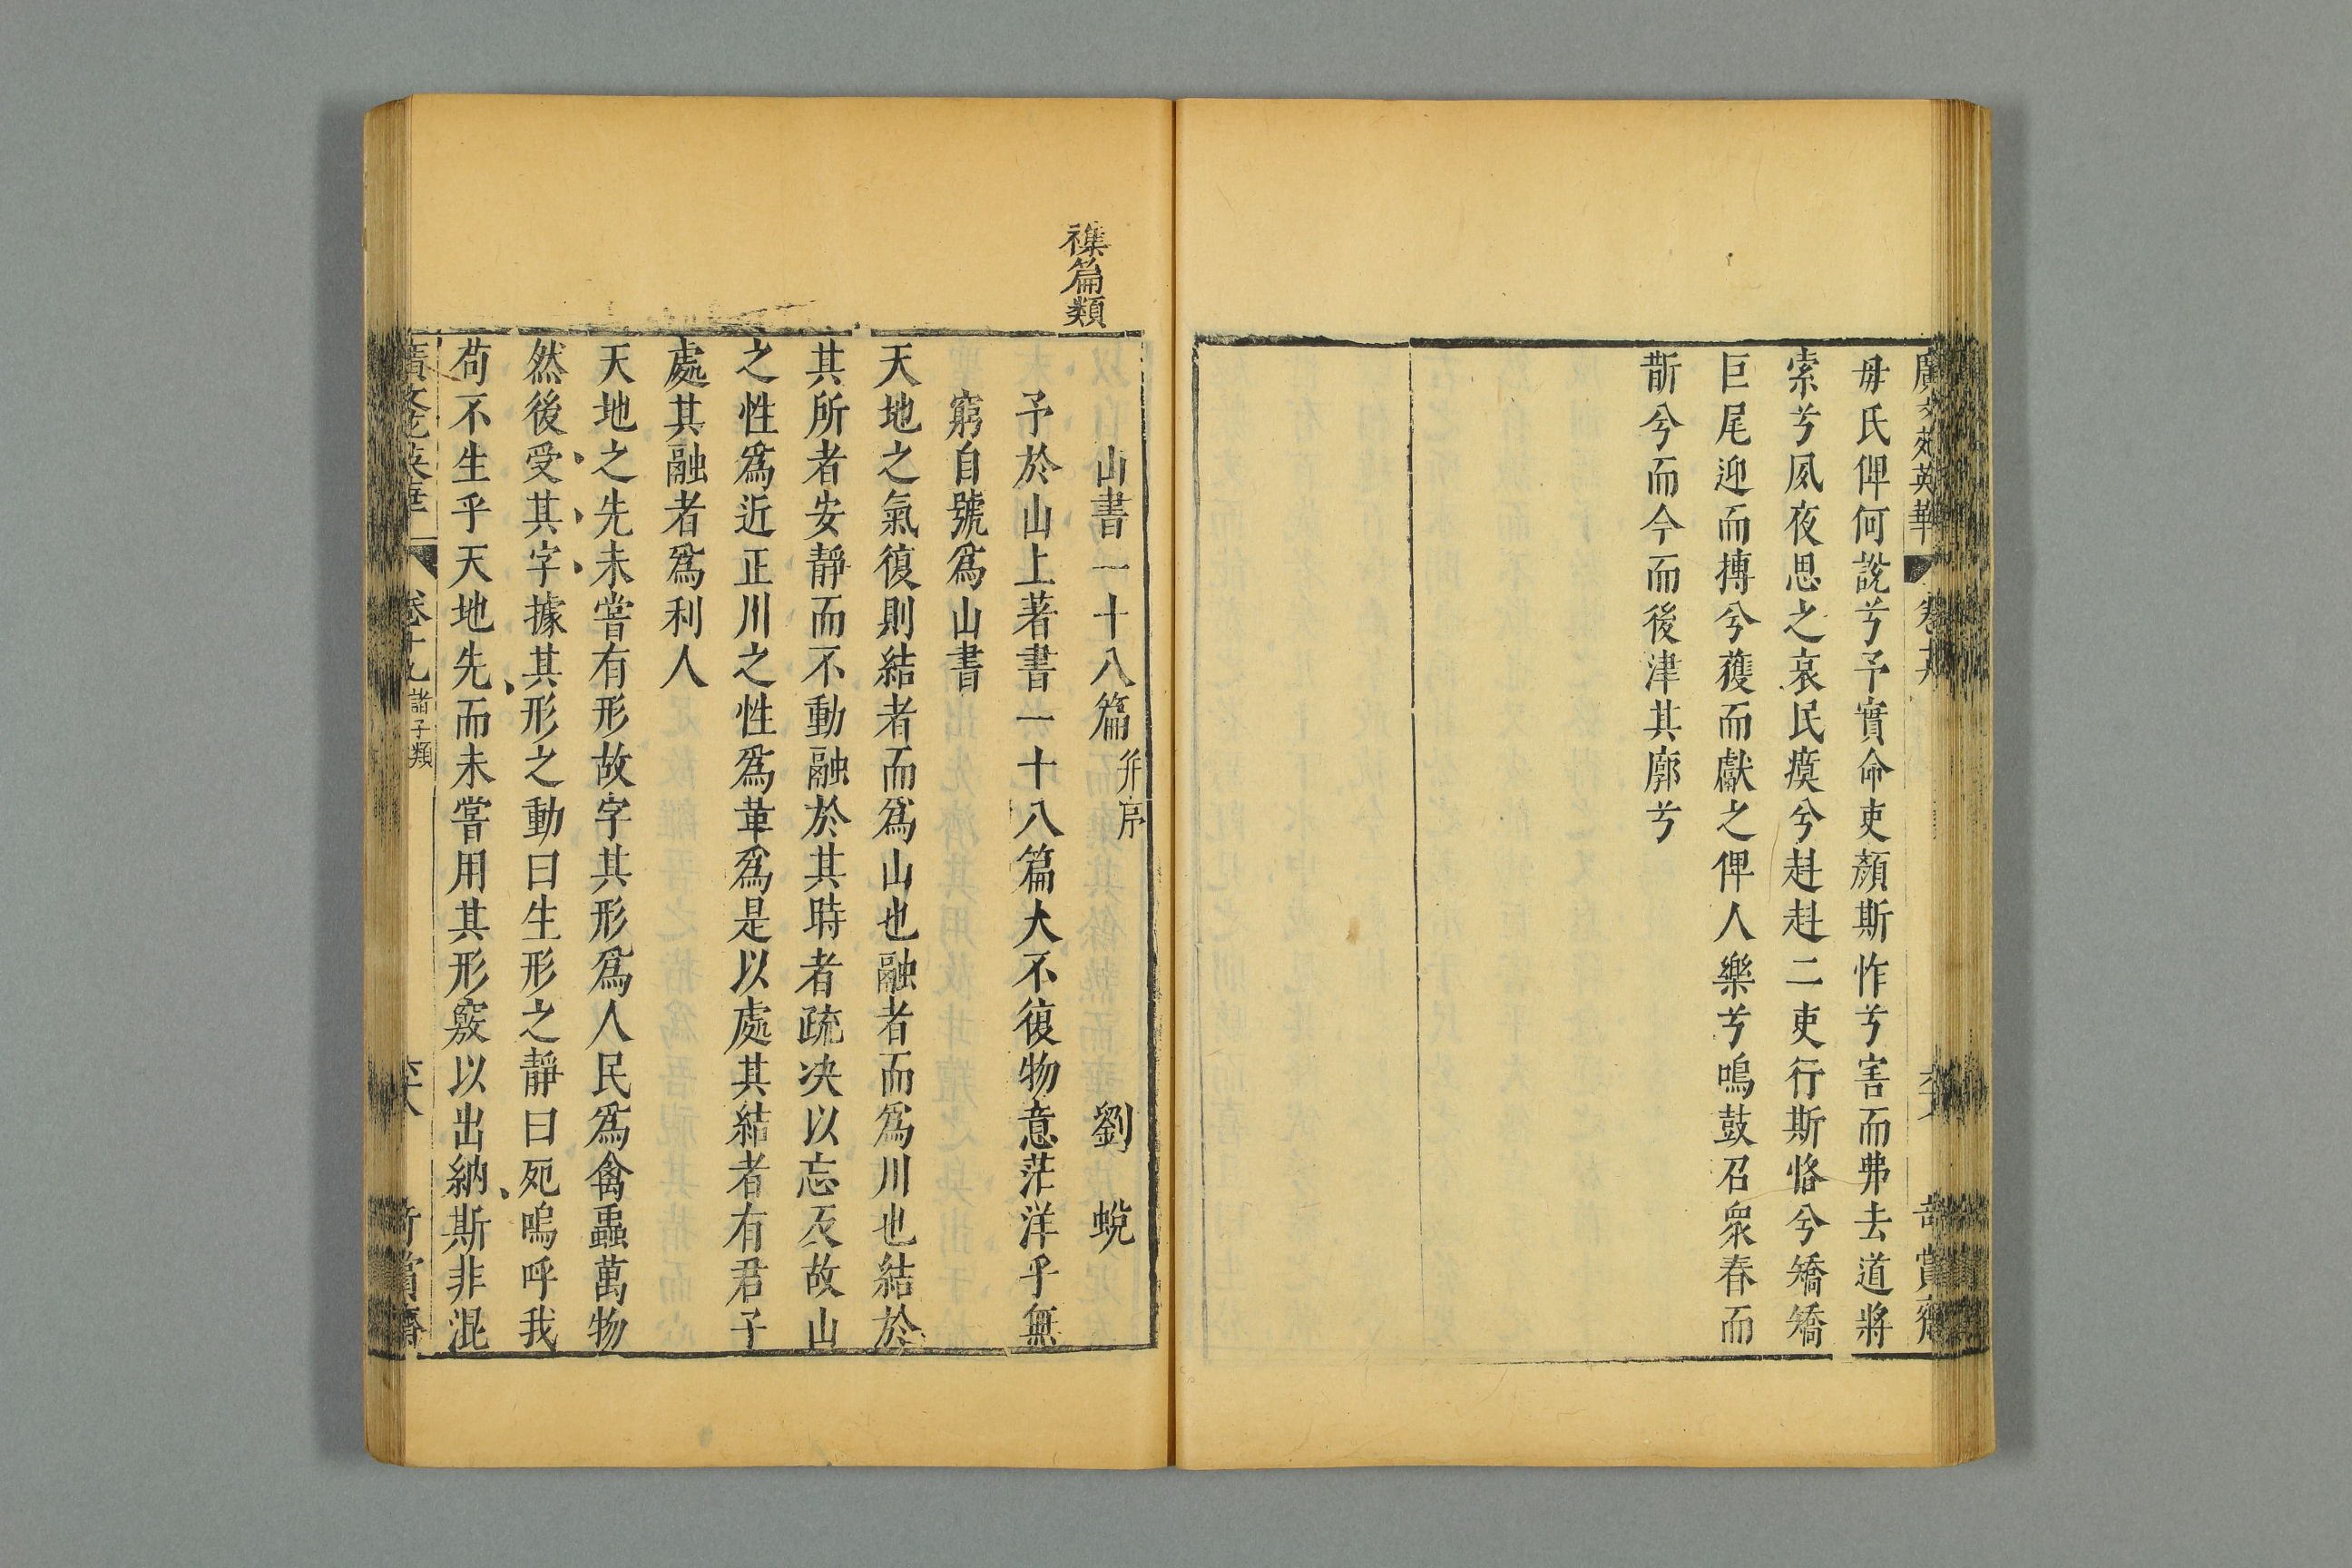 廣文苑英華
毋氏俾何說兮予實命吏顏斯怍兮害而弗去道將
索兮夙夜思之哀民瘼兮赳赳二吏行斯恪兮矯矯
巨尾迎而搏兮獲而獻之俾人樂兮鳴鼓召衆春而
斮兮而今而後津其廓兮
襍篇類
山書一十八篇 并序 劉蛻
予於山上著書一十八篇大不復物意茫洋乎無
窮自號爲山書
天地之氣復則結者而爲山也融者而爲川也結於
其所者安靜而不動融於其時者疏决以忘反故山
之性爲近正川之性爲革爲是以處其結者有君子
處其融者爲利人
天地之先未嘗有形故字其形爲人民爲禽蟲萬物
然後受其字據其形之動曰生形之靜曰死嗚呼我
苟不生乎天地先而未嘗用其形竅以出納斯非混
廣文苑英華 卷十九 諸子類